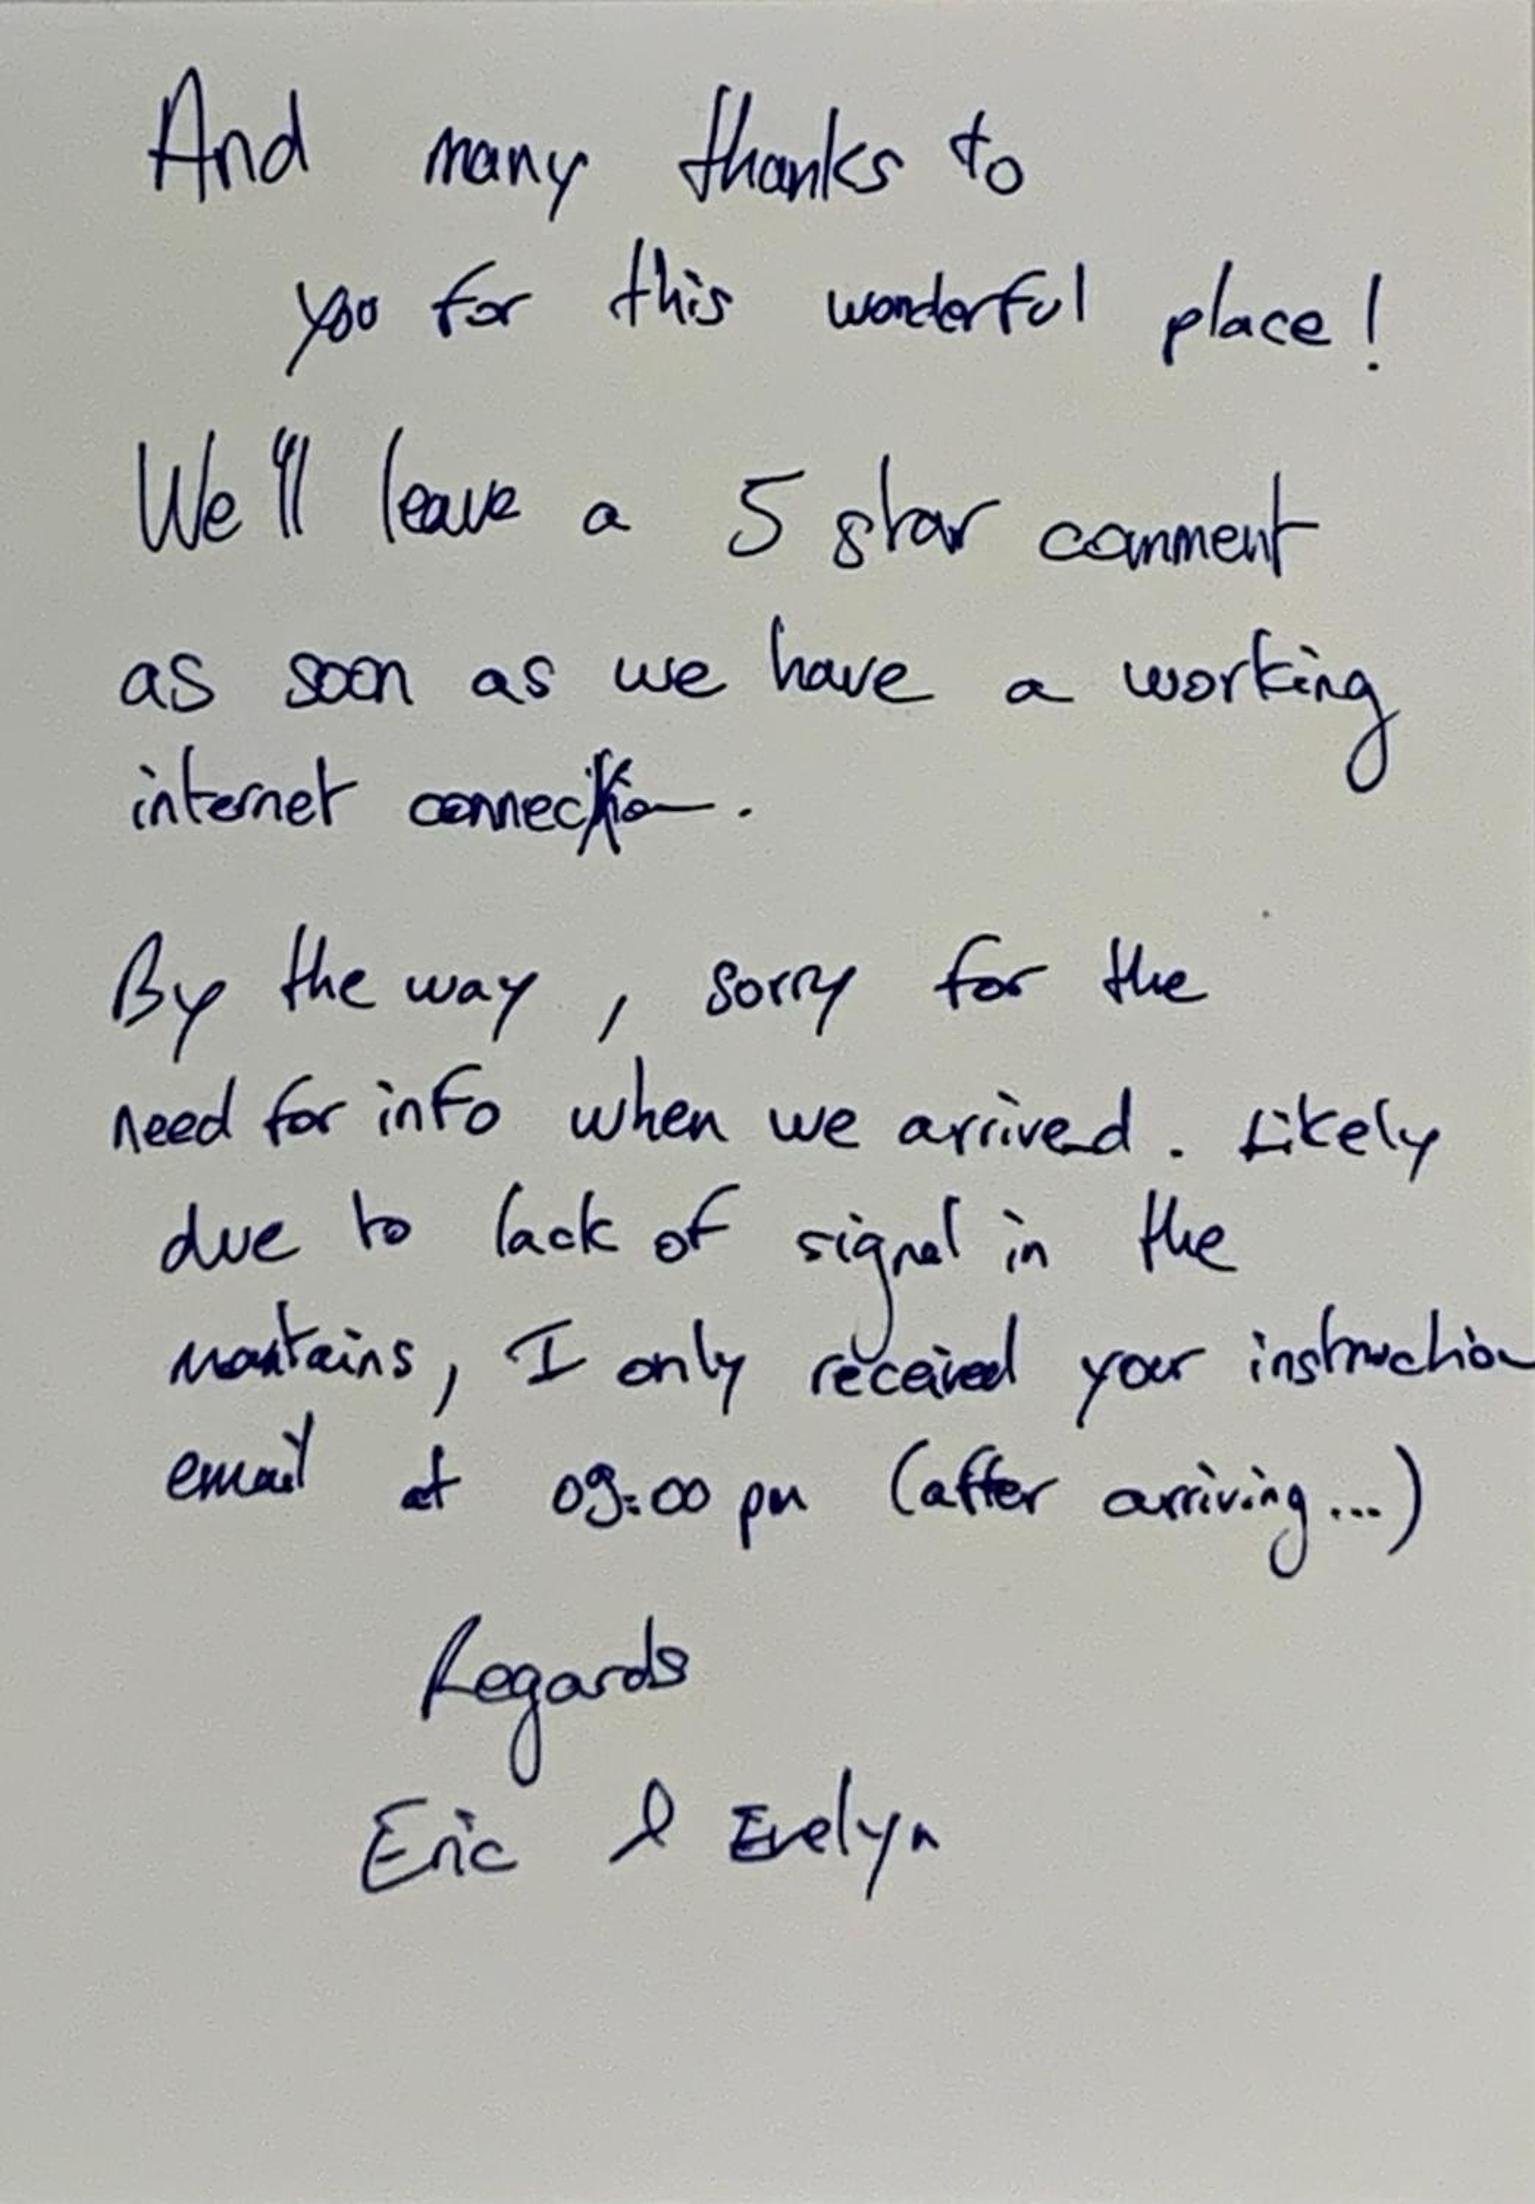 And many thanks to
you for this wonderful place!
We'll leave a 5 star comment
as soon as we have a working
internet connection.
By the way, sorry for the
need for info when we arrived. Likely
due to lack of signal in the
mountains, I only received your instruction
email at 09:00 pm (after arriving...)
Regards
Eric & Evelyn